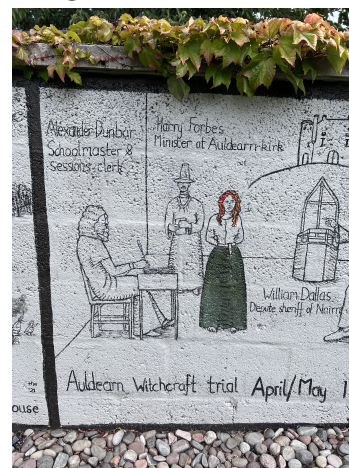 Alexander Dunbar
Schoolmaster &
sessions-clerk
Harry Forbes
Minister of Auldearn-kirk
William Dallas
Depute sheriff of Nairn
Auldearn Witchcraft trial April/May 1
ouse